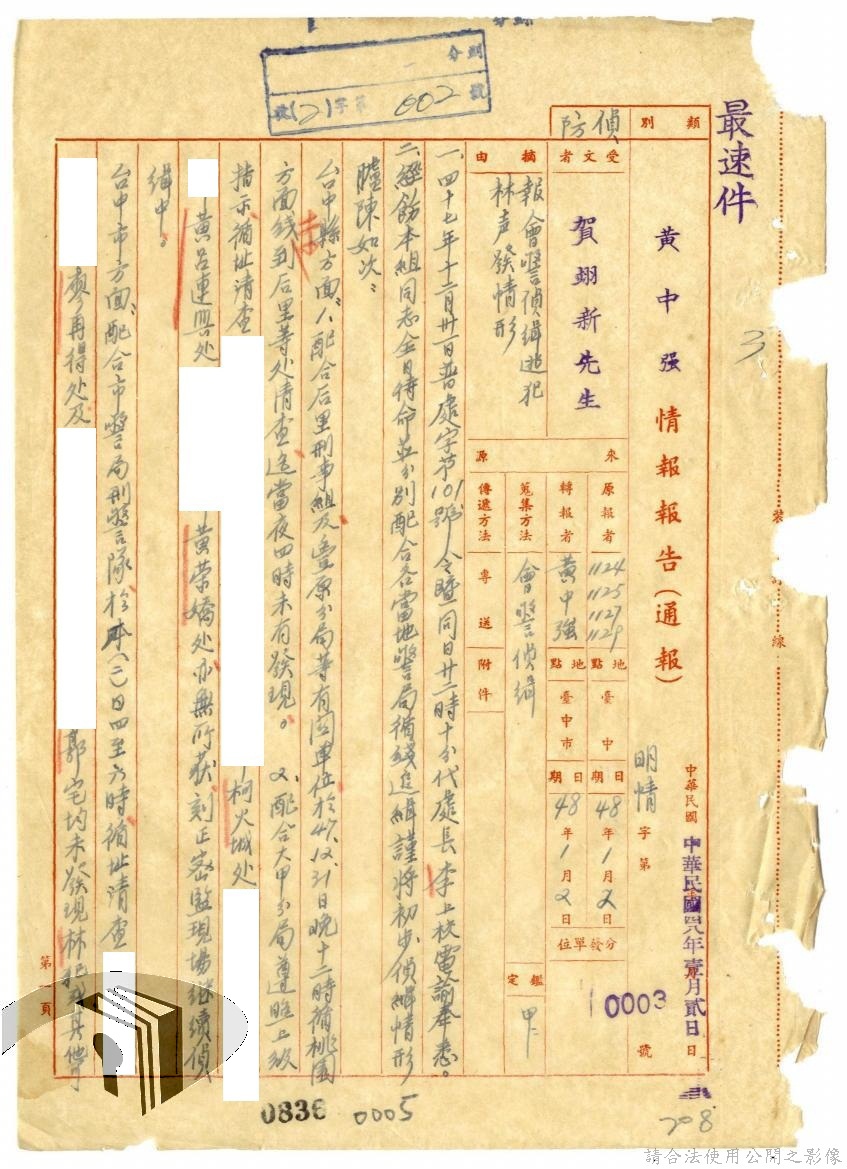 最速件
黃中强情報報告（通報）
中華民國
中華民國四八年壹月貳日
明情字第 10003 號
類別
偵防
受文者
賀翊新先生
摘由
報會警偵緝逃犯
林声發情形
來源
原報者 1124 1125 1127 1129 地點 臺中 日期 48年1月2日
轉報者 黃中强 地點 臺中市 日期 48年1月2日
分發單位
蒐集方法 會警偵緝
傳遞方法 專送
附件
鑑定 甲
一、四十七年十二月卅一日普處字第101號令暨同日廿二時十分代處長李上校電諭奉悉。
二、經飭本組同志全日待命並分別配合各當地警局循线追緝謹將初步偵緝情形
臚陳如次：
台中縣方面：1、配合后里刑事組及豐原分局等有関單位於47.12.31日晚十二時循桃園
方面线到后里等处清查迄當夜四時未有發現。2、配合大甲分局遵照上级
指示循址清查
柯火城处
黃呂連興处
黃荣嬌处亦無所获刻正密監現場继續偵
緝中。
台中市方面：配合市警局刑警隊於本(二)日四至六時循址清查
廖再得处及
郭宅均未發現林犯
第一頁
分類
號(2)字第 002 號
3
裝訂線
0836
0005
208
請合法使用公開之影像